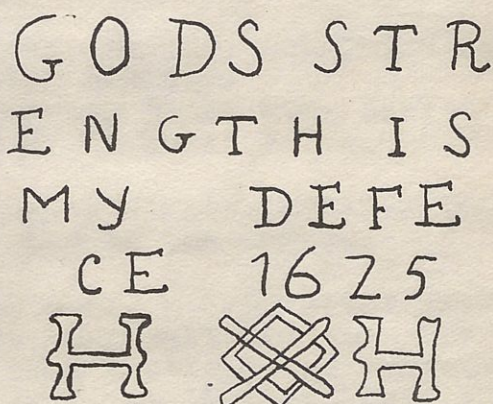 GODS STR
ENGTH IS
MY DEFE
CE 1625
H H